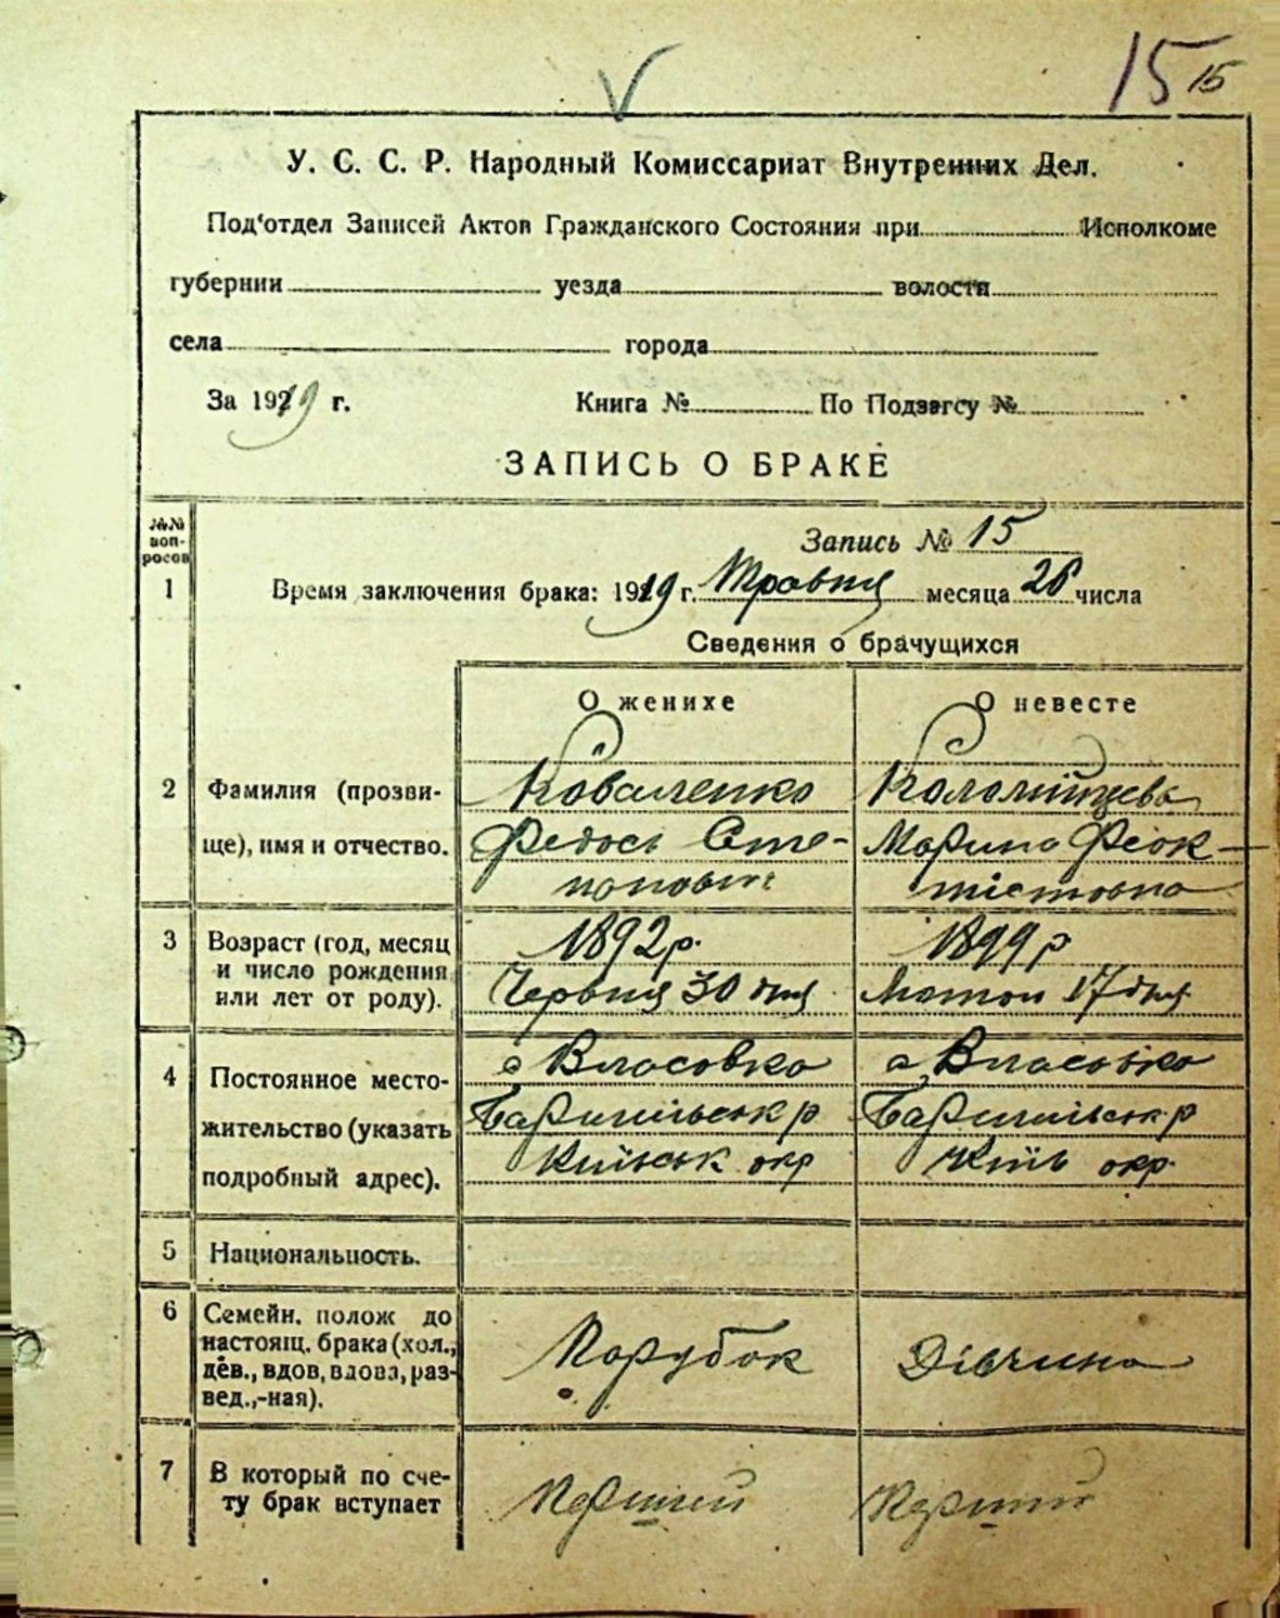 15 15
У. С. С. Р. Народный Комиссариат Внутренних Дел.
Под'отдел Записей Актов Гражданского Состояния при Исполкоме
губернии уезда волости
села города
За 1919 г. Книга № По Подзагсу №
ЗАПИСЬ О БРАКЕ
№№ воп-
росов
Запись № 15
1 Время заключения брака: 1919 г. Травня месяца 26 числа
Сведения о брачущихся
О женихе О невесте
2 Фамилия (прозви- Коваленко Коломійцева
ще), имя и отчество. Федось Сте- Марина Феок-
панович тістовна
3 Возраст (год, месяц 1892 р. 1899 р
и число рождения
или лет от роду). Червня 30 дня Мотои 17 дня
4 Постоянное место- с Власовка с. Власовка
жительство (указать Баришільськ р Баришільськ р
подробный адрес). Київськ окр Київ окр.
5 Национальность.
6 Семейн. полож до
настоящ. брака (хол.,
дев., вдов, вдова, раз-
вед.,-ная). Порубок Дівчина
7 В который по сче-
ту брак вступает Перший Перший